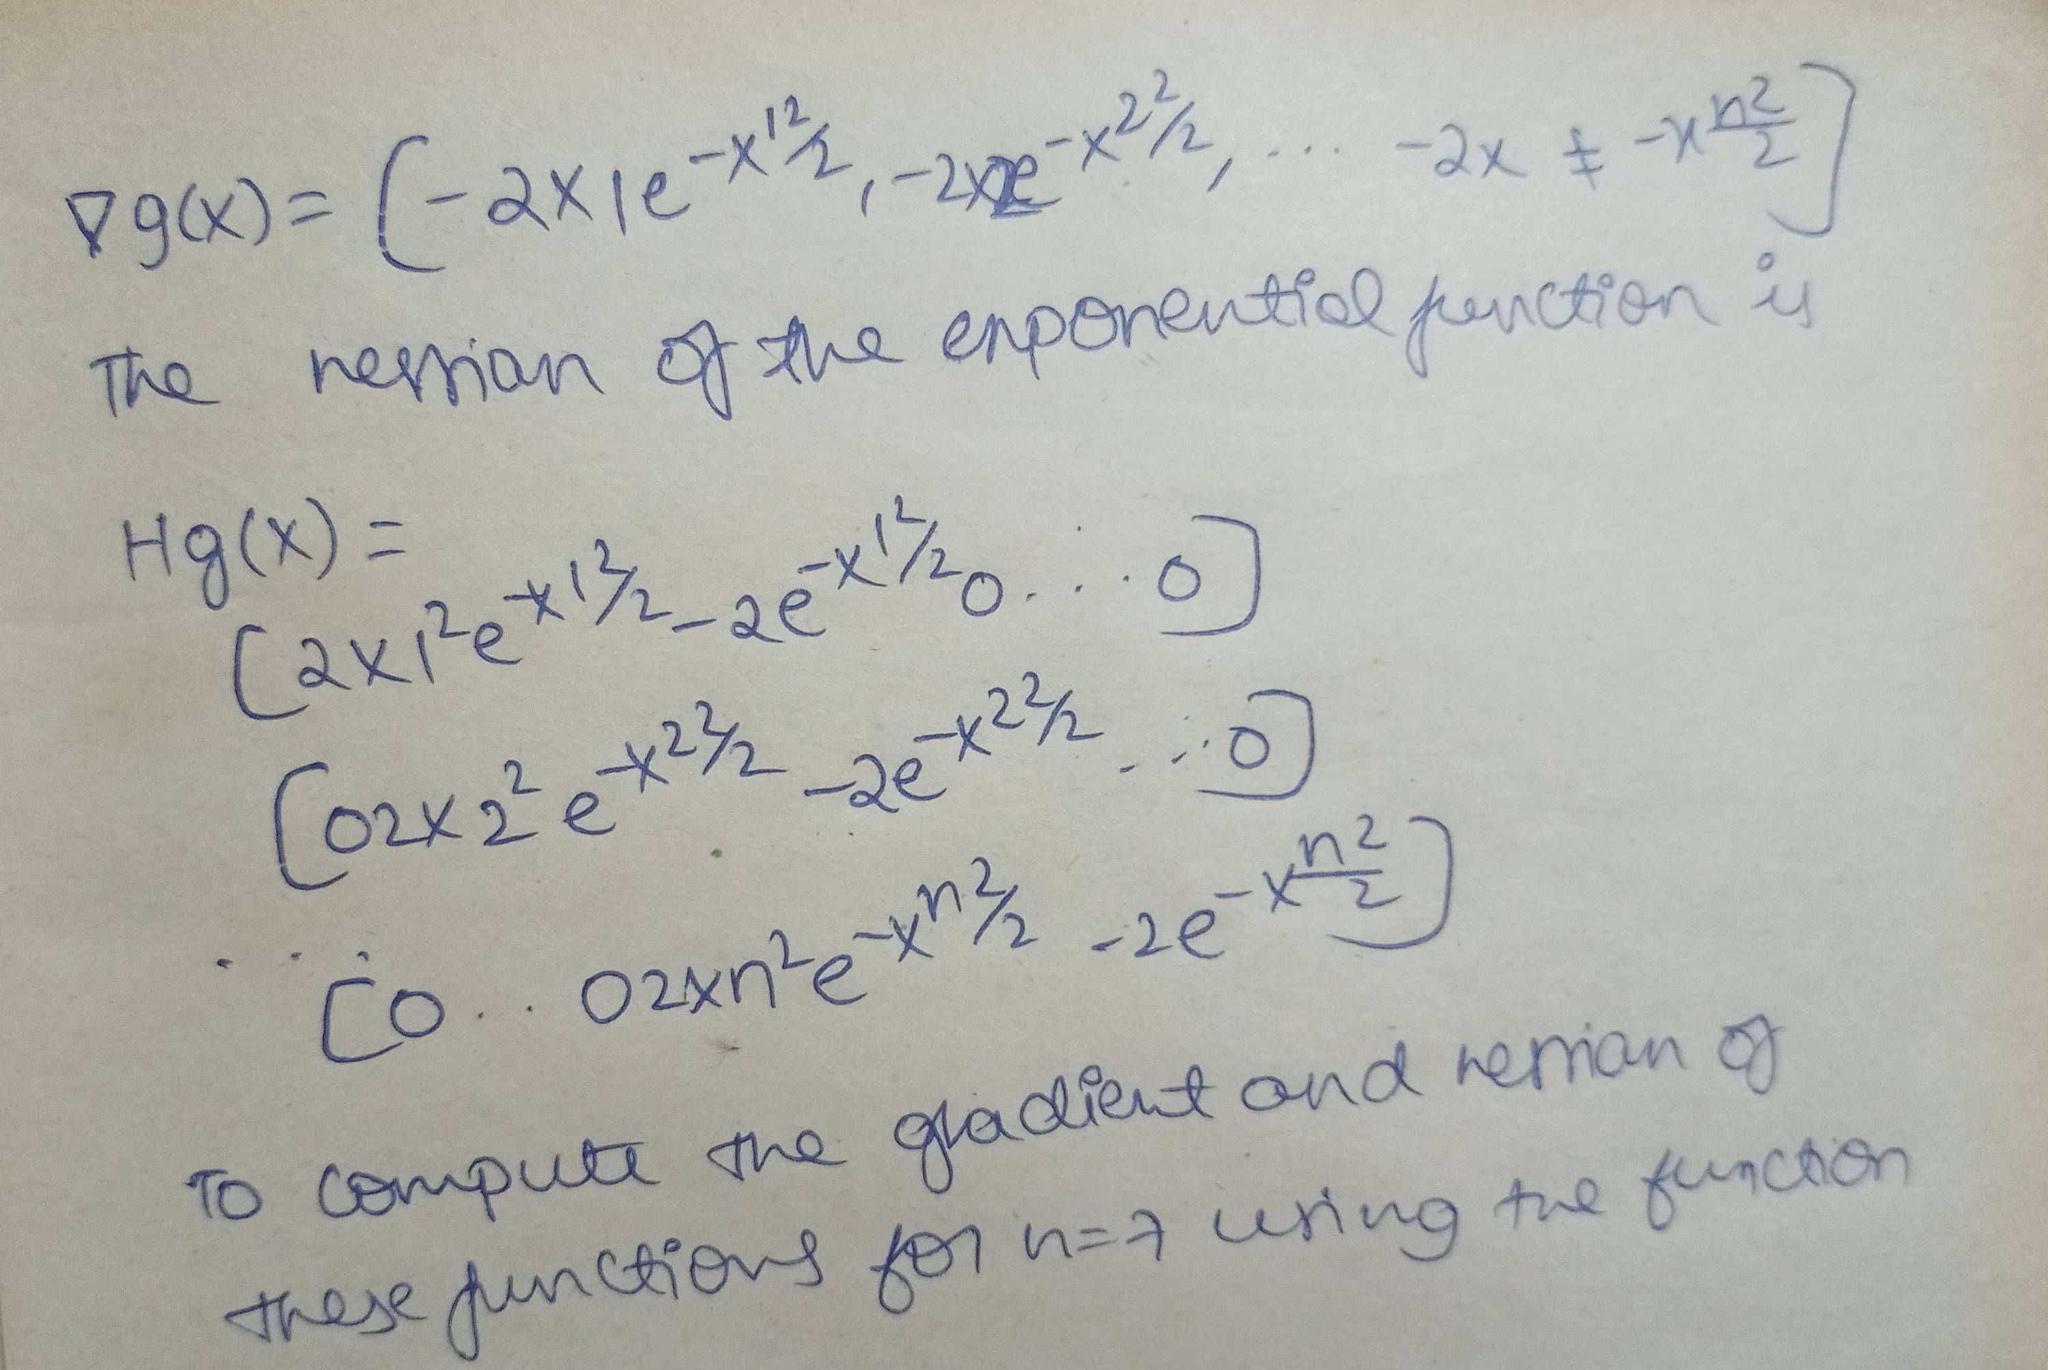 ∇g(x) = [-2x1e^-x1²/2, -2x2e^-x2²/2, ... -2x ± -x n²/2]
The nessian of the exponential function is
Hg(x) =
[2x1²e^-x1²/2 -2e^-x1²/2 0 ... 0]
[02x2²e^-x2²/2 -2e^-x2²/2 ... 0]
... [0 .. 02xn²e^-xn²/2 -2e^-x n²/2]
To compute the gradient and nessian of
these functions for n=7 using the function